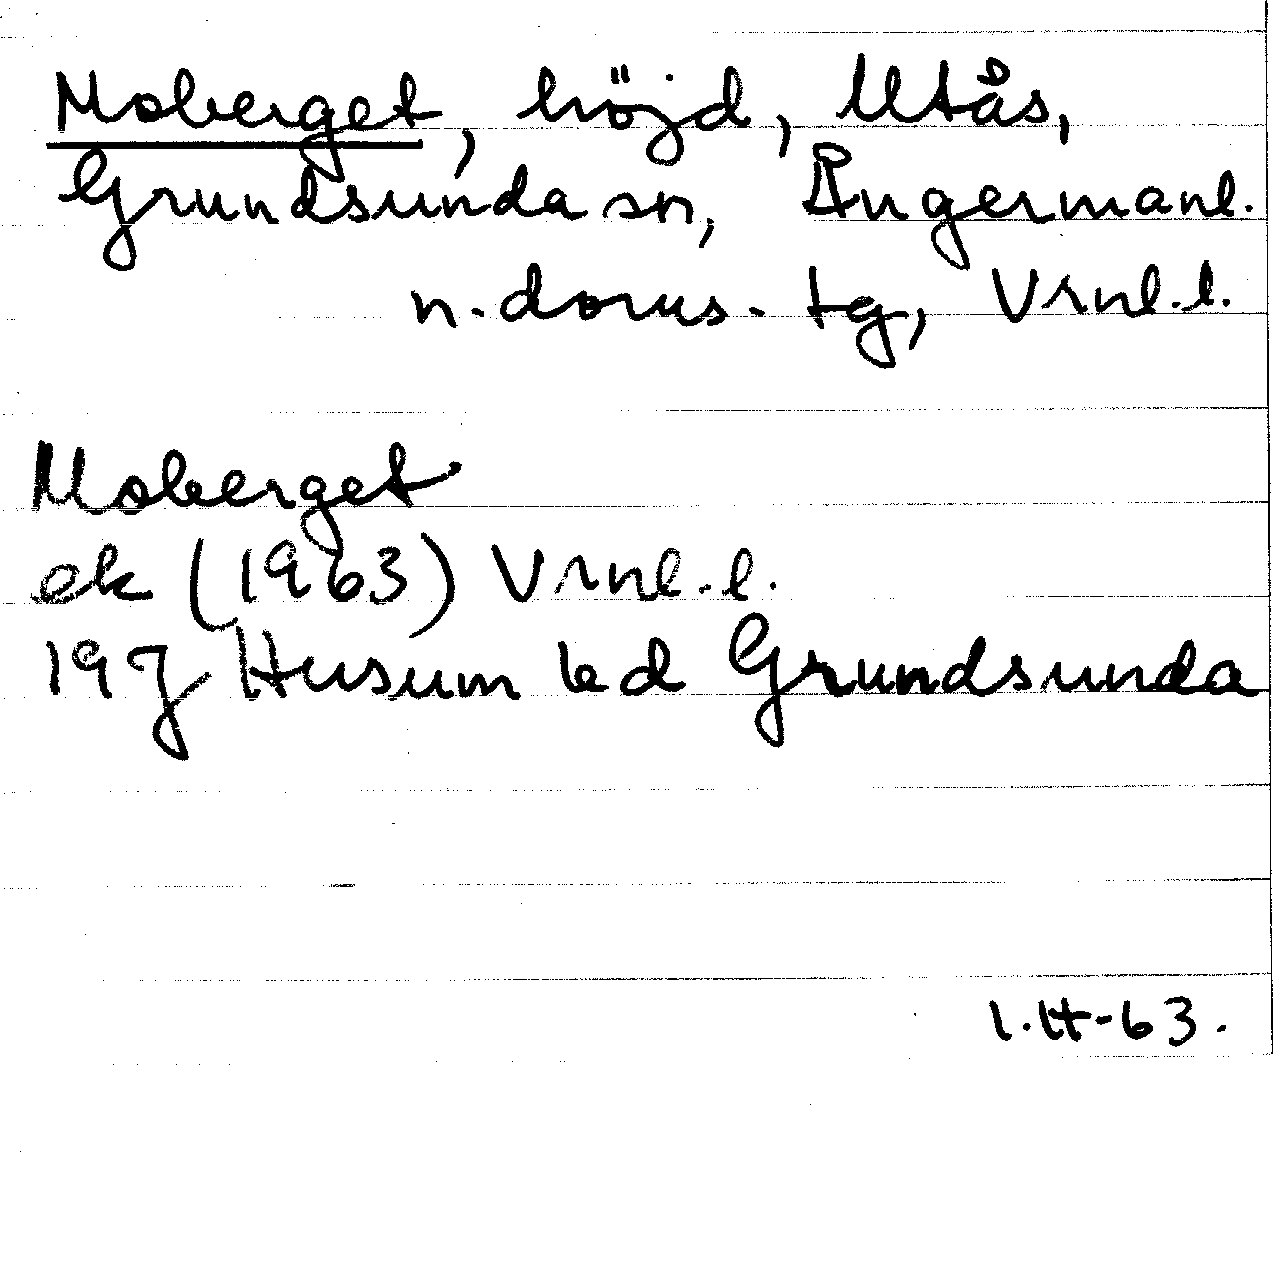 Moberget, höjd, Utås,
Grundsunda sn, Ångermanl.
n. doms. tg, Vrnl. l.
Moberget
ek (1963) Vrnl. l.
19J Husum bd Grundsunda
1.4-63.